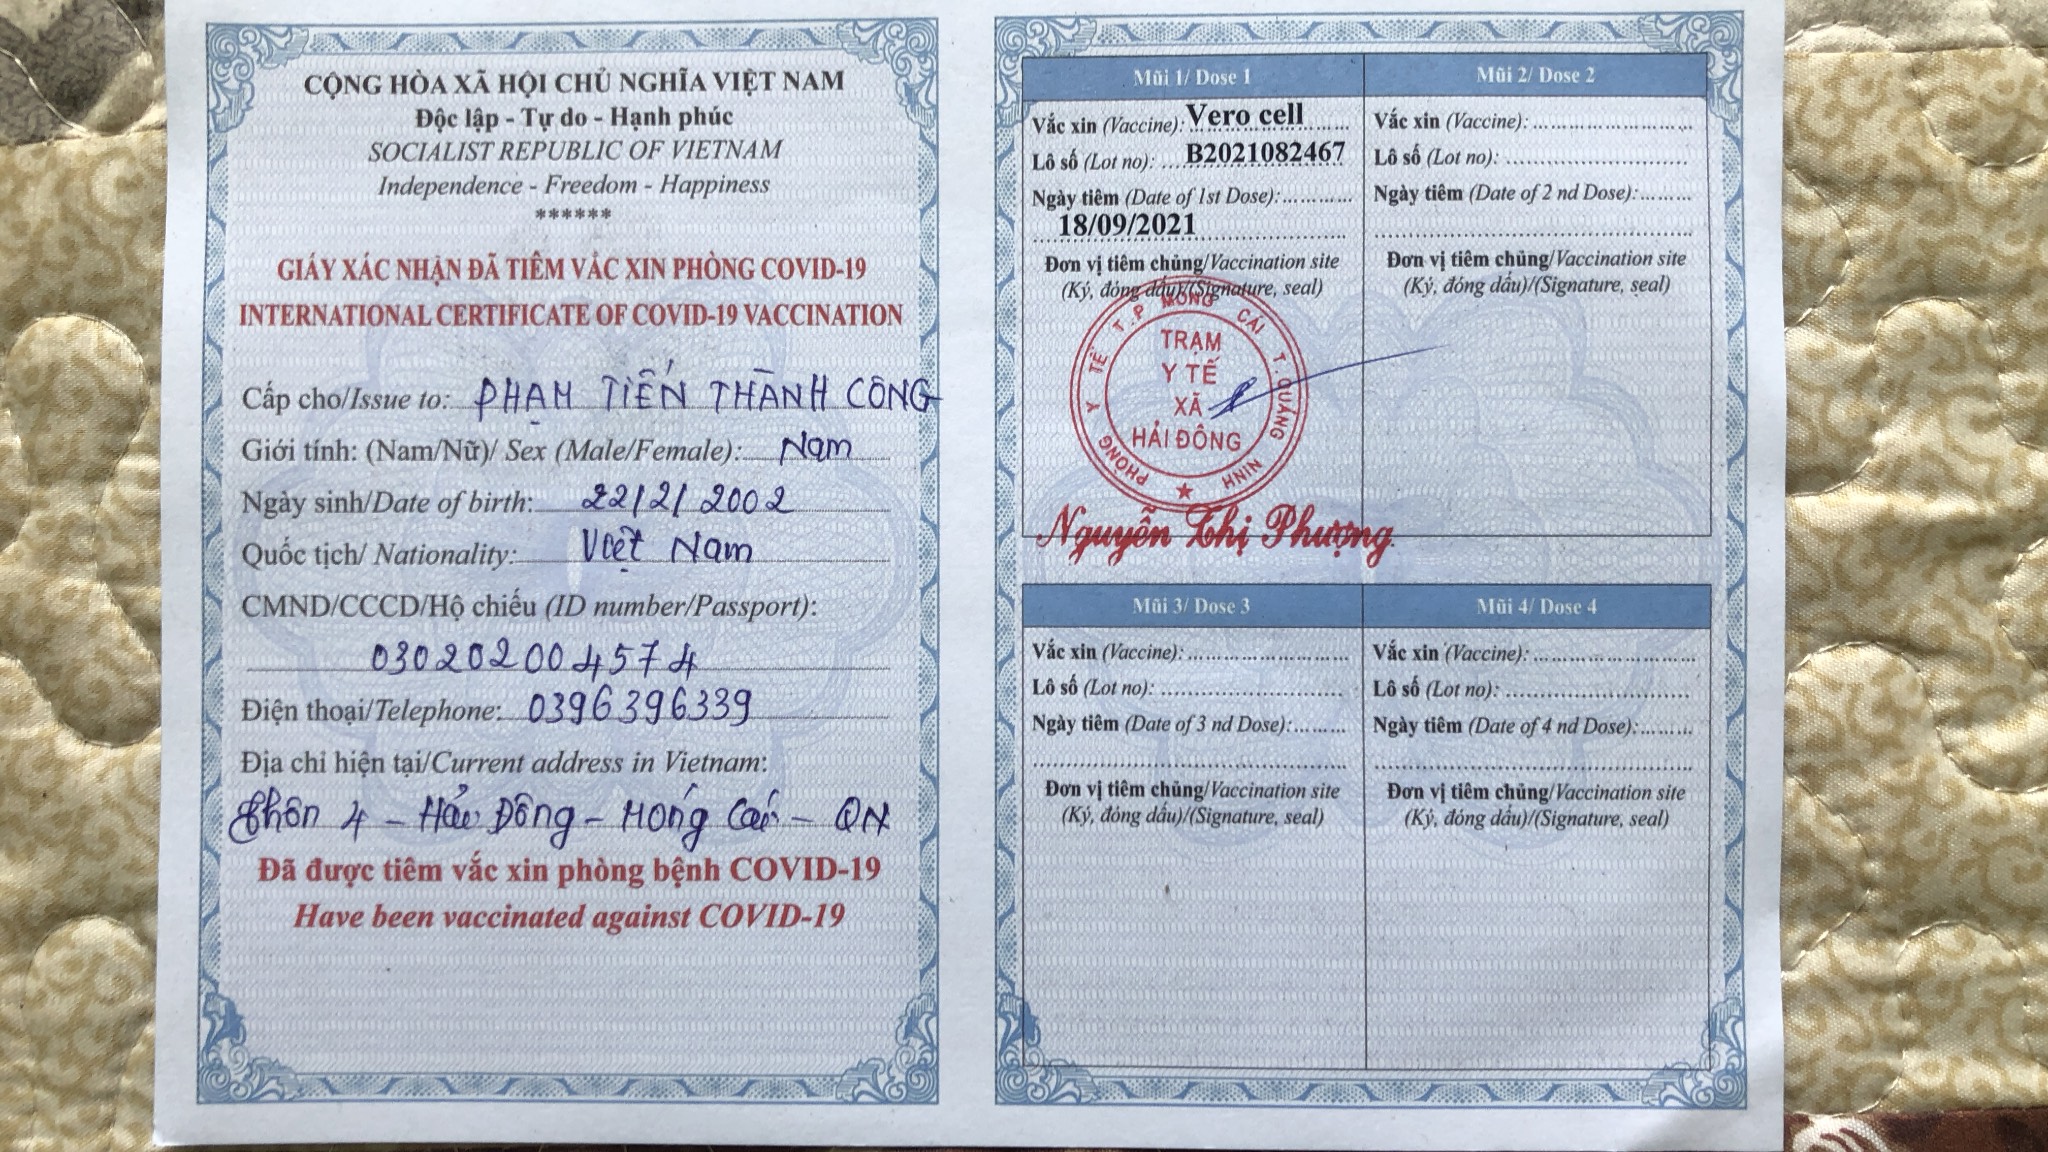 CỘNG HÒA XÃ HỘI CHỦ NGHĨA VIỆT NAM
Độc lập - Tự do - Hạnh phúc
SOCIALIST REPUBLIC OF VIETNAM
Independence - Freedom - Happiness
******
GIẤY XÁC NHẬN ĐÃ TIÊM VẮC XIN PHÒNG COVID-19
INTERNATIONAL CERTIFICATE OF COVID-19 VACCINATION
Cấp cho/Issue to: PHẠM TIẾN THÀNH CÔNG
Giới tính: (Nam/Nữ)/ Sex (Male/Female): Nam
Ngày sinh/Date of birth: 22/2/2002
Quốc tịch/ Nationality: Việt Nam
CMND/CCCD/Hộ chiếu (ID number/Passport):
030202004574
Điện thoại/Telephone: 0396396339
Địa chỉ hiện tại/Current address in Vietnam:
Thôn 4 - Hải Đông - Móng Cái - QN
Đã được tiêm vắc xin phòng bệnh COVID-19
Have been vaccinated against COVID-19
Mũi 1/ Dose 1
Vắc xin (Vaccine): Vero cell
Lô số (Lot no): B2021082467
Ngày tiêm (Date of 1st Dose):
18/09/2021
Đơn vị tiêm chủng/Vaccination site
(Ký, đóng dấu)/(Signature, seal)
PHÒNG Y TẾ T.P MÓNG CÁI T. QUẢNG NINH
TRẠM
Y TẾ
XÃ
HẢI ĐÔNG
Nguyễn Thị Phượng
Mũi 2/ Dose 2
Vắc xin (Vaccine):
Lô số (Lot no):
Ngày tiêm (Date of 2 nd Dose):
Đơn vị tiêm chủng/Vaccination site
(Ký, đóng dấu)/(Signature, seal)
Mũi 3/ Dose 3
Vắc xin (Vaccine):
Lô số (Lot no):
Ngày tiêm (Date of 3 nd Dose):
Đơn vị tiêm chủng/Vaccination site
(Ký, đóng dấu)/(Signature, seal)
Mũi 4/ Dose 4
Vắc xin (Vaccine):
Lô số (Lot no):
Ngày tiêm (Date of 4 nd Dose):
Đơn vị tiêm chủng/Vaccination site
(Ký, đóng dấu)/(Signature, seal)